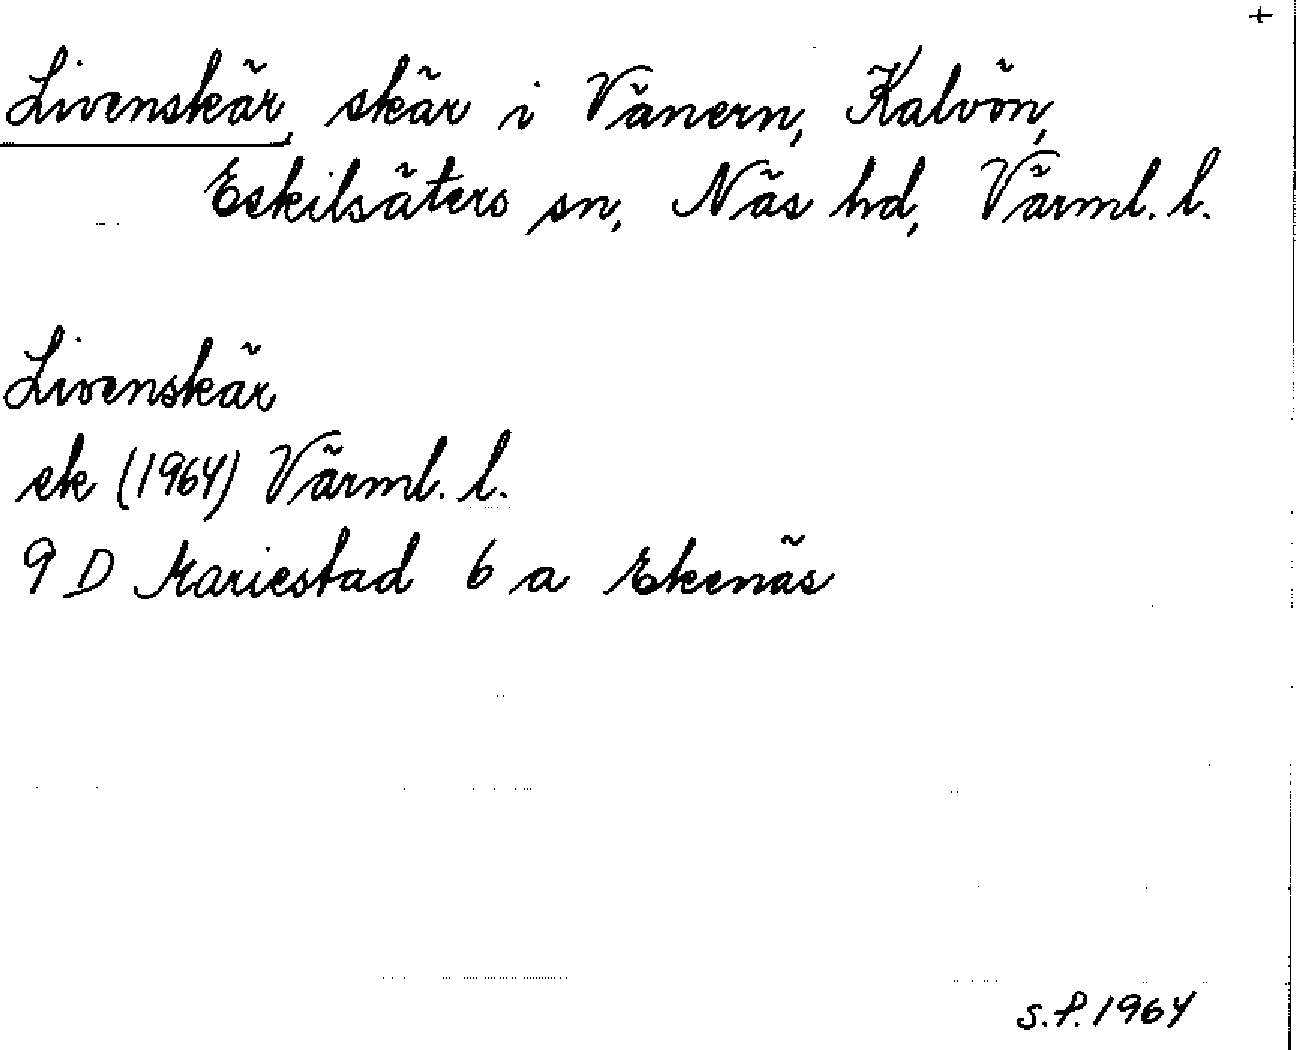 +
Livenskär, skär i Vänern, Kalvön,
Eskilsäters sn, Näs hd, Värml. l.
Livenskär
ek (1964) Värml. l.
9 D Mariestad 6 a Ekenäs
S.P. 1964